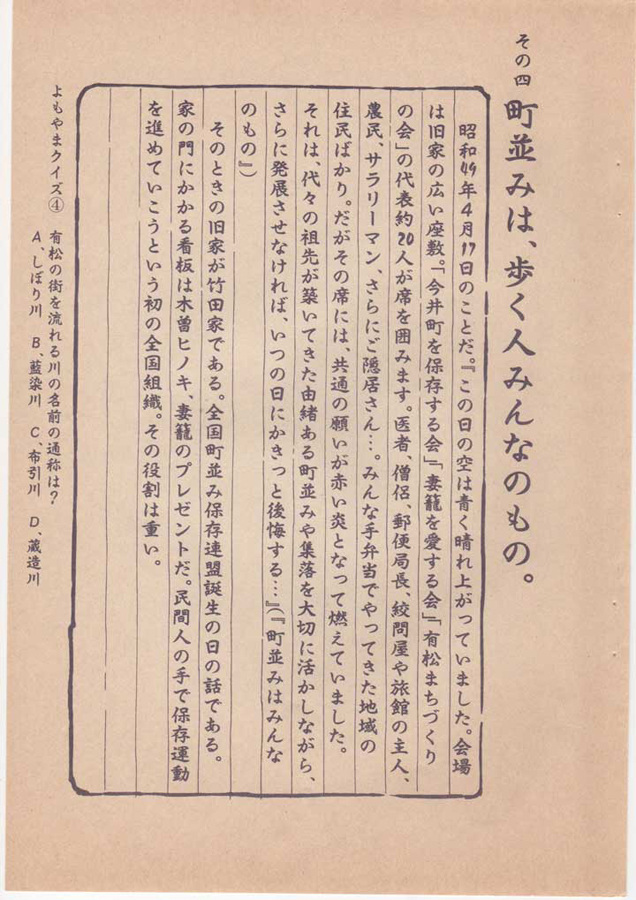 その四 町並みは、歩く人みんなのもの。
昭和49年4月17日のことだ。『この日の空は青く晴れ上がっていました。会場
は旧家の広い座敷。「今井町を保存する会」「妻籠を愛する会」「有松まちづくり
の会」の代表約20人が席を囲みます。医者、僧侶、郵便局長、絞問屋や旅館の主人、
農民、サラリーマン、さらにご隠居さん…。みんな手弁当でやってきた地域の
住民ばかり。だがその席には、共通の願いが赤い炎となって燃えていました。
それは、代々の祖先が築いてきた由緒ある町並みや集落を大切に活かしながら、
さらに発展させなければ、いつの日にかきっと後悔する…』(『町並みはみんな
のもの』)
そのときの旧家が竹田家である。全国町並み保存連盟誕生の日の話である。
家の門にかかる看板は木曽ヒノキ、妻籠のプレゼントだ。民間人の手で保存運動
を進めていこうという初の全国組織。その役割は重い。
よもやまクイズ④ 有松の街を流れる川の名前の通称は?
A、しぼり川 B、藍染川 C、布引川 D、蔵造川